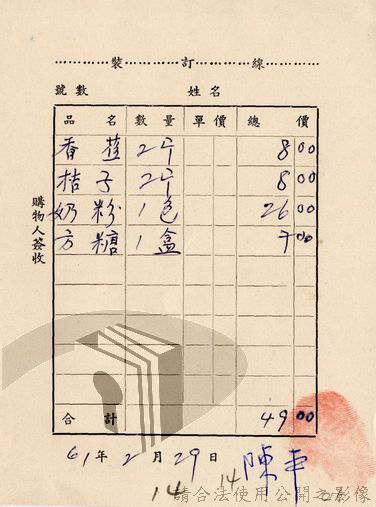 裝訂線
號數 姓名
品名 數量 單價 總價
香蕉 2斤 8 00
桔子 2斤 8 00
奶粉 1包 26 00
方糖 1盒 7 00
購物人簽收
合計 49 00
61年2月29日
14 14
請合法使用公開之影像